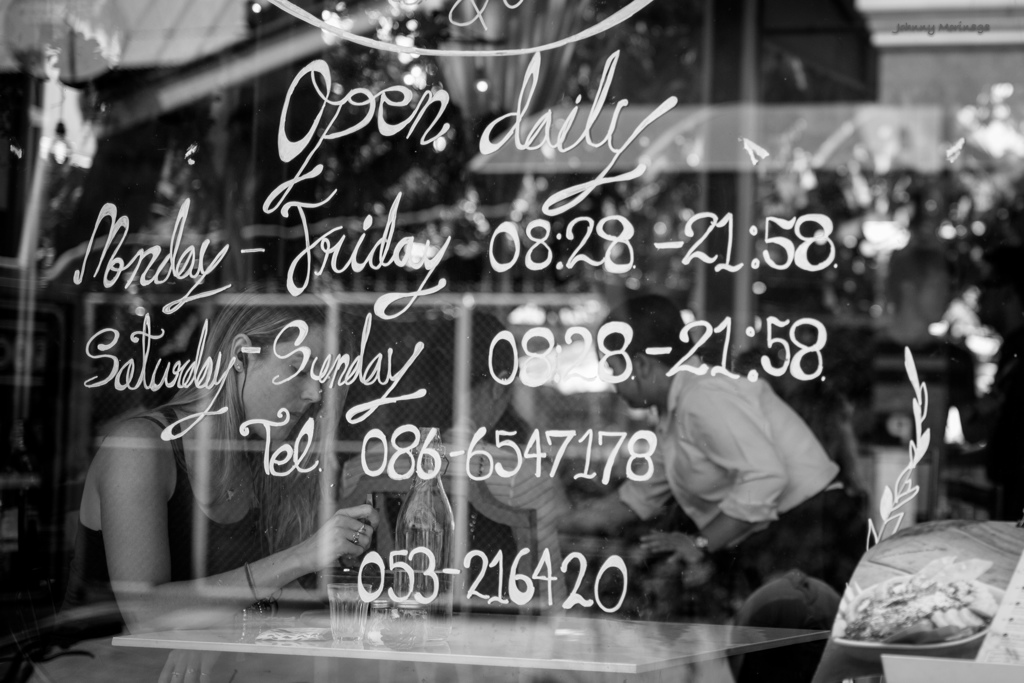 Johnny Marinago
&
Open daily
Monday - Friday 08:28. - 21:58.
Saturday - Sunday 08:28. - 21:58.
Tel. 086-6547178
053-216420